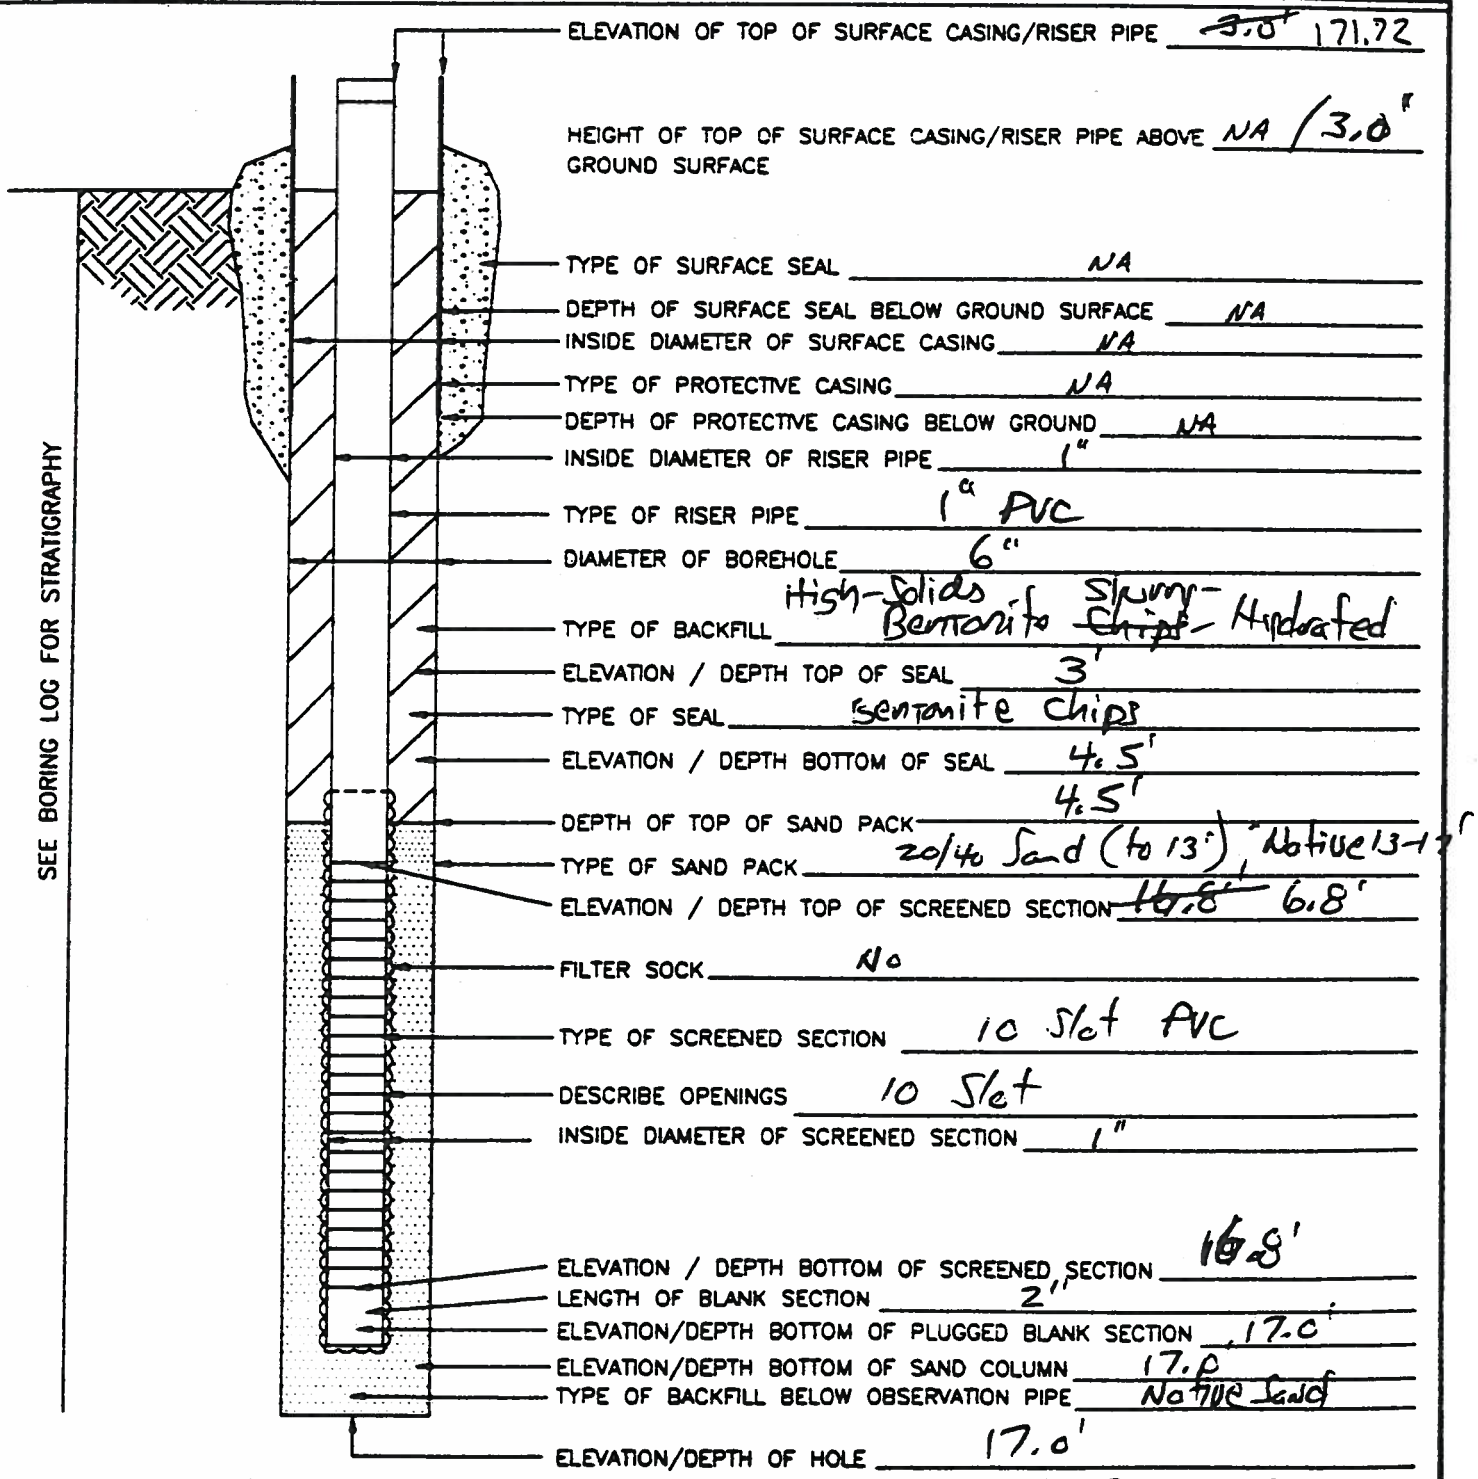 ELEVATION OF TOP OF SURFACE CASING/RISER PIPE 3.0' 171.72
HEIGHT OF TOP OF SURFACE CASING/RISER PIPE ABOVE NA / 3.0"
GROUND SURFACE
TYPE OF SURFACE SEAL NA
DEPTH OF SURFACE SEAL BELOW GROUND SURFACE NA
INSIDE DIAMETER OF SURFACE CASING NA
TYPE OF PROTECTIVE CASING NA
DEPTH OF PROTECTIVE CASING BELOW GROUND NA
INSIDE DIAMETER OF RISER PIPE 1"
TYPE OF RISER PIPE 1" PVC
DIAMETER OF BOREHOLE 6"
High-Solids Slurry-
TYPE OF BACKFILL Bentonite Chips- Hydrated
ELEVATION / DEPTH TOP OF SEAL 3'
TYPE OF SEAL Bentonite Chips
ELEVATION / DEPTH BOTTOM OF SEAL 4.5'
DEPTH OF TOP OF SAND PACK 4.5'
TYPE OF SAND PACK 20/40 Sand (to 13'), Native 13-17'
ELEVATION / DEPTH TOP OF SCREENED SECTION 16.8' 6.8'
FILTER SOCK No
TYPE OF SCREENED SECTION 10 Slot PVC
DESCRIBE OPENINGS 10 Slot
INSIDE DIAMETER OF SCREENED SECTION 1"
ELEVATION / DEPTH BOTTOM OF SCREENED SECTION 16.8'
LENGTH OF BLANK SECTION 2"
ELEVATION/DEPTH BOTTOM OF PLUGGED BLANK SECTION 17.0'
ELEVATION/DEPTH BOTTOM OF SAND COLUMN 17.0
TYPE OF BACKFILL BELOW OBSERVATION PIPE Native Sand
ELEVATION/DEPTH OF HOLE 17.0'
SEE BORING LOG FOR STRATIGRAPHY